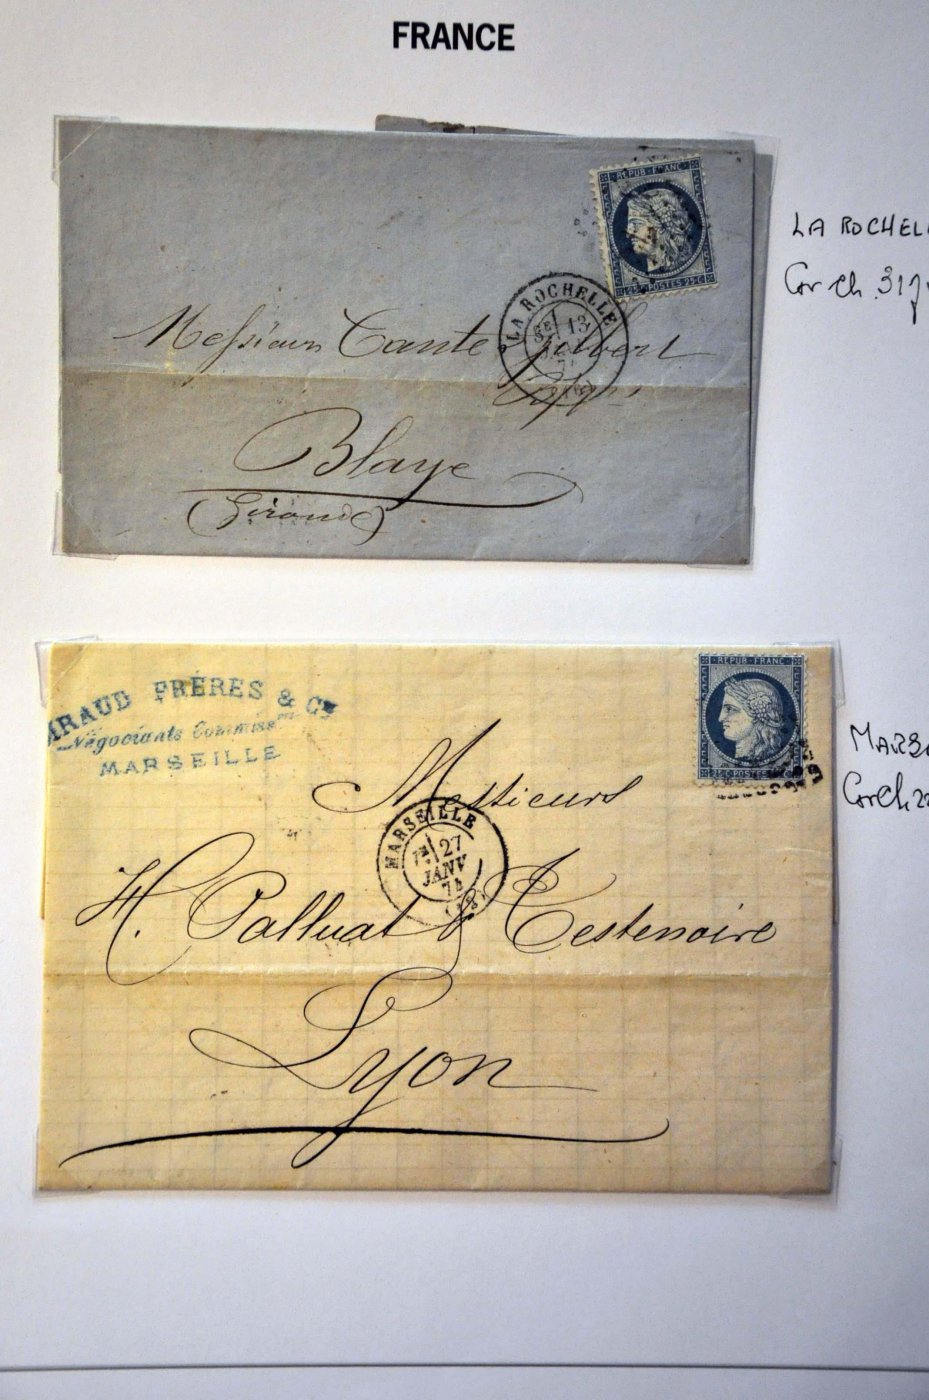 FRANCE
REPUB FRANC
25 C POSTES 25 C
LA ROCHELLE
13
Messieurs Tante
Blaye
(Gironde)
LA ROCHEL
Cor ch. 317
RAUD FRÈRES & Cie
Négociants Commiss
MARSEILLE
REPUB FRANC
25 C POSTES 25 C
Messieurs
MARSEILLE
27
JANV
74
H. Palluat & Testenoire
Lyon
MARS
Cor Ch 22